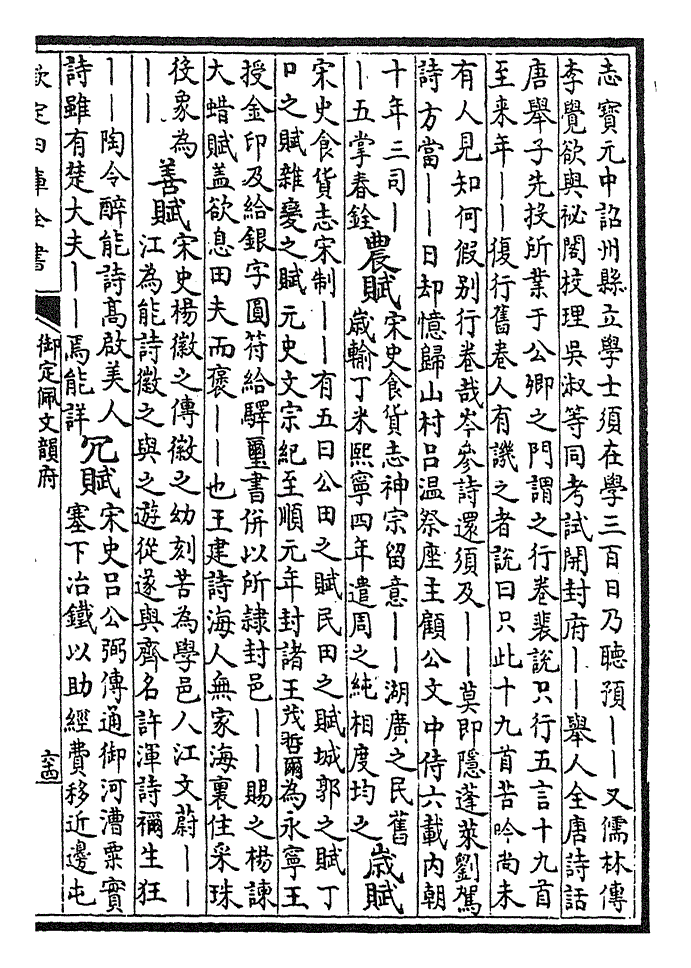 志寶元中詔州縣立學士須在學三百日乃聽預——又儒林傳
李覺欲與祕閣校理吳淑等同考試開封府——舉人全唐詩話
唐舉子先投所業于公卿之門謂之行卷裴說只行五言十九首
至来年——復行舊卷人有譏之者說曰只此十九首苦吟尚未
有人見知何假别行卷哉岑參詩還須及——莫即隱蓬萊劉駕
詩方當——日却憶歸山村吕温祭座主顧公文中侍六載内朝
十年三司—
—五掌春銓
農賦
宋史食貨志神宗留意——湖廣之民舊
歲輸丁米熙寧四年遣周之純相度均之
歲賦
宋史食貨志宋制——有五曰公田之賦民田之賦城郭之賦丁
口之賦雜變之賦元史文宗紀至順元年封諸王茂哲爾為永寧王
授金印及給銀字圓符給驛璽書併以所隸封邑——賜之楊諫
大蜡賦蓋欲息田夫而褒——也王建詩海人無家海裏住采珠
役象為
——
善賦
宋史楊徽之傳徽之幼刻苦為學邑人江文蔚——
江為能詩徽之與之遊從遂與齊名許渾詩禰生狂
——陶令醉能詩高啟美人
詩雖有楚大夫——焉能詳
冗賦
宋史吕公弼傳通御河漕粟實
塞下冶鐵以助經費移近邊屯
欽定四庫全書
御定佩文韻府